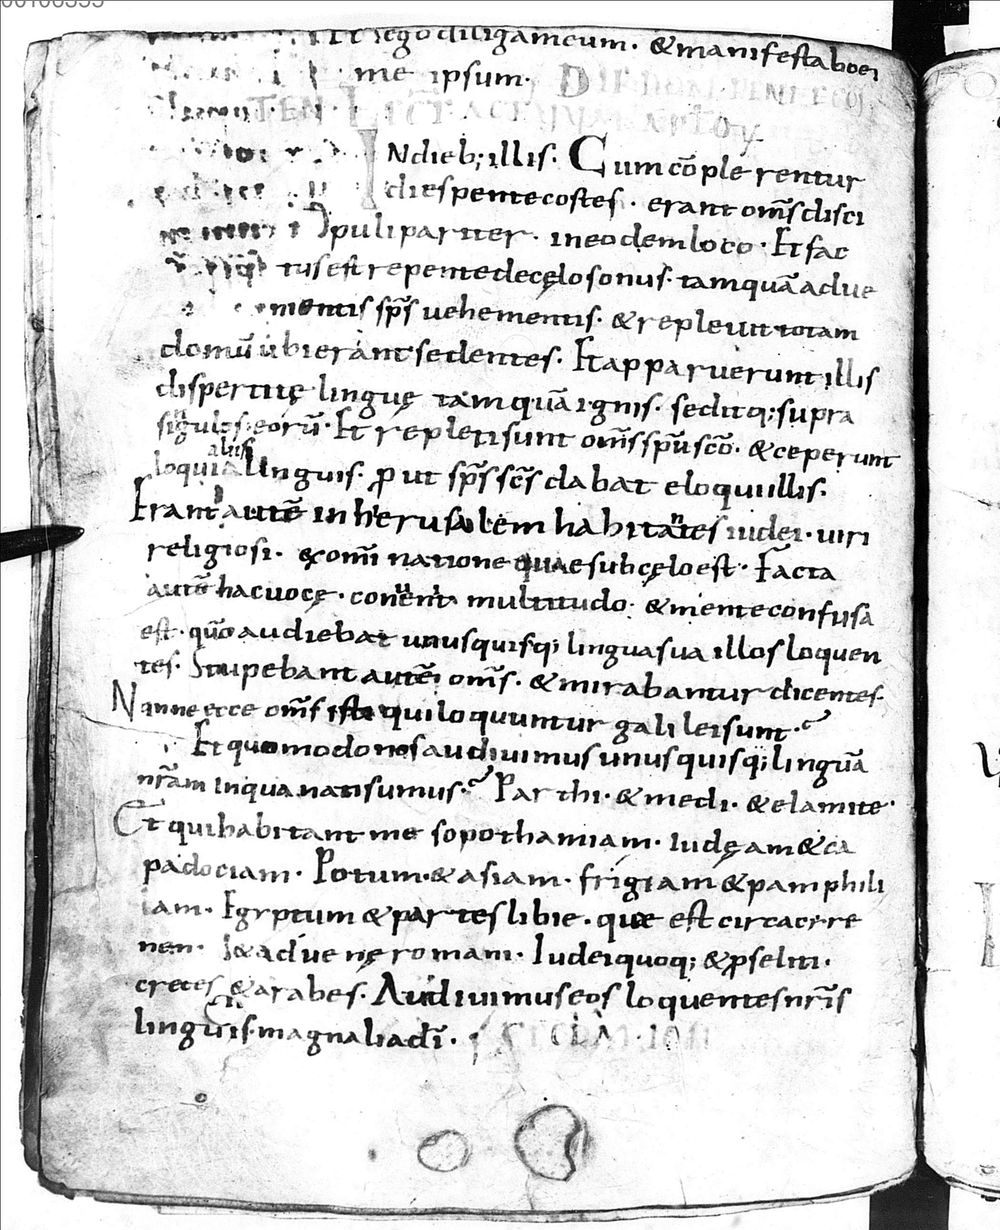 Et ego diligam eum · & manifestabo ei
me ipsum ·
DIE DOM PENTECOS
TEN · LECT ACTUUM APTOR
In dieb; illis · Cum cōplerentur
dies pentecostes · erant om̄s disci
puli pariter · in eodem loco · Et fac
tus est repente de cęlo sonus · tamquā adve
nientis sp̄s vehementis · & replevit totam
domū ubi erant sedentes · Et apparuerunt illis
dispertitę linguę tamquā ignis · seditq; supra
singulos eorū · Et repleti sunt om̄s sp̄u sc̄o · & ceperunt
loqui aliis linguis · prout sp̄s sc̄s dabat eloqui illis ·
Erant autē in hierusalem habitantes iudei · viri
religiosi · ex om̄i natione quae sub cęlo est · Facta
autē hac voce · convenit multitudo · & mente confusa
est · qūo audiebat unusquisq; lingua sua illos loquen
tes · Stupebant autē om̄s · & mirabantur dicentes ·
Nonne ecce om̄s isti qui loquuntur galilei sunt ·
Et quomodo nos audivimus unusquisq; linguā
nr̄am in qua nati sumus · Parthi · & medi · & elamite ·
Et qui habitant mesopothamiam · Iudęam & ca
padociam · Potum · & asiam · frigiam & pamphili
iam · Egyptum & partes libie · que est circa cyre
nen · & advenę romani · Iudei quoq; & p̄seliti ·
cretes & arabes · Audivimus eos loquentes nr̄is
linguis · magnalia dī · SECDM · IOH